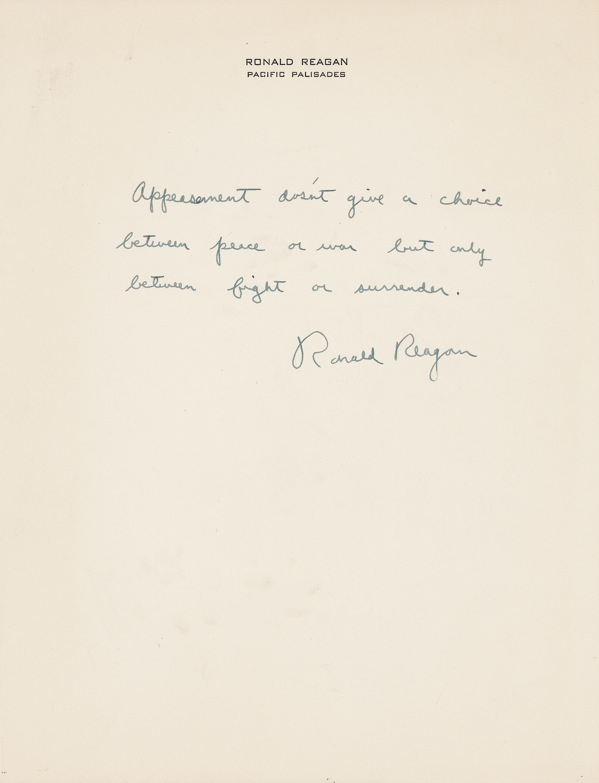 RONALD REAGAN
PACIFIC PALISADES
Appeasement dosn't give a choice
between peace or war but only
between fight or surrender.
Ronald Reagan